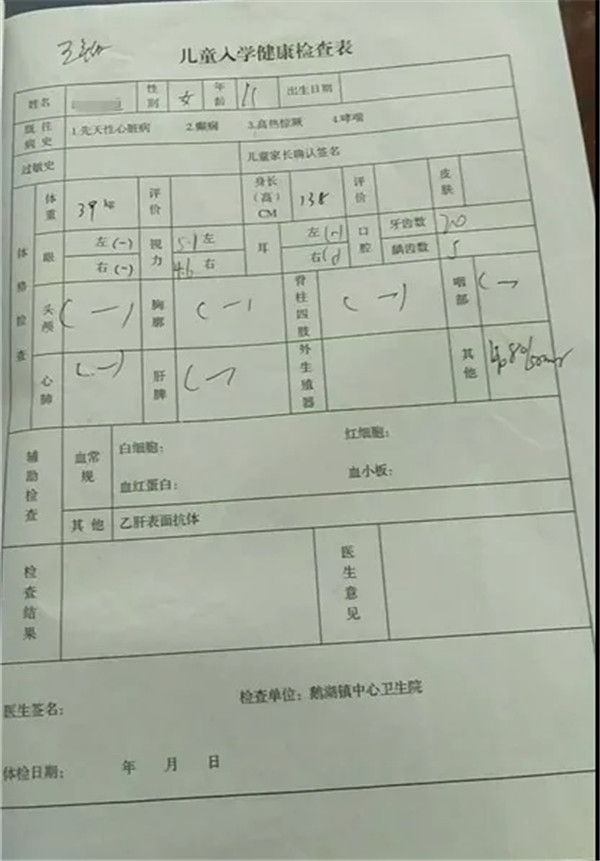 儿童入学健康检查表
姓名 性别 女 年龄 11 出生日期
既往病史 1.先天性心脏病 2.癫痫 3.高热惊厥 4.哮喘
过敏史 儿童家长确认签名
体格检查
体重 39 kg 评价 身长(高)CM 138 评价 皮肤
眼 左(-) 视力 5.1 左 耳 左 口腔 牙齿数 20
右(-) 4.6 右 右 龋齿数 5
头颅 (-) 胸廓 (-) 脊柱四肢 (-) 咽部 (-
心肺 (-) 肝脾 (-) 外生殖器 其他
辅助检查 血常规 白细胞: 红细胞:
血红蛋白: 血小板:
其他 乙肝表面抗体
检查结果 医生意见
医生签名: 检查单位: 鹅湖镇中心卫生院
体检日期: 年 月 日